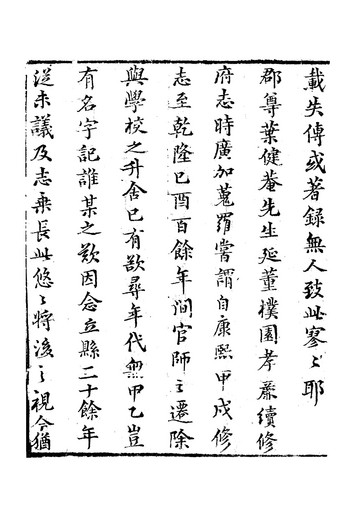 載失傳或著録無人致此寥〻耶
郡尊葉健菴先生延董樸園孝亷續修
府志時廣加蒐羅嘗謂自康熙甲戌修
志至乾隆己酉百餘年間官師之遷除
與學校之升舍已有欲尋年代無甲乙豈
有名字記誰某之歎因念立縣二十餘年
從未議及志乘長此悠〻將後之視今猶